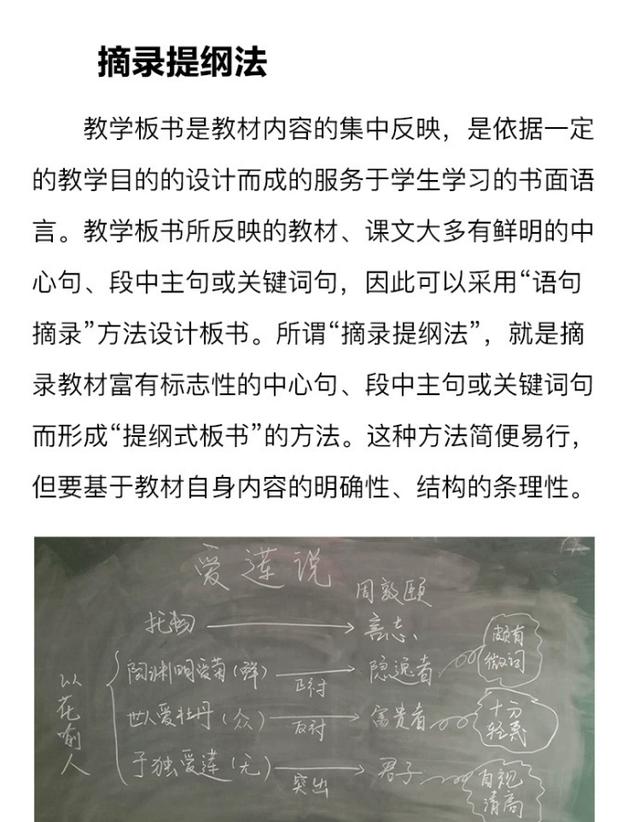 摘录提纲法
教学板书是教材内容的集中反映，是依据一定
的教学目的的设计而成的服务于学生学习的书面语
言。教学板书所反映的教材、课文大多有鲜明的中
心句、段中主句或关键词句，因此可以采用“语句
摘录”方法设计板书。所谓“摘录提纲法”，就是摘
录教材富有标志性的中心句、段中主句或关键词句
而形成“提纲式板书”的方法。这种方法简便易行，
但要基于教材自身内容的明确性、结构的条理性。
爱莲说
周敦颐
托物 言志
以花喻人
陶渊明爱菊（鲜） 正衬 隐逸者 颇有微词
世人爱牡丹（众） 反衬 富贵者 十万轻蔑
予独爱莲（无） 突出 君子 自视清高